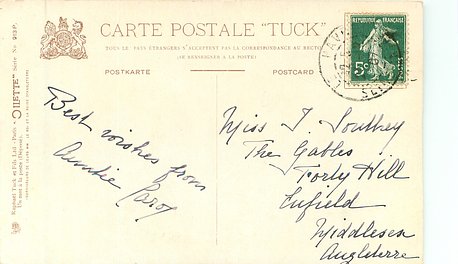 CARTE POSTALE "TUCK"
TOUS LE PAYS ÉTRANGERS N'ACCEPTENT PAS LA CORRESPONDANCE AU RECTO
(SE RENSEIGNER A LA POSTE)
POSTKARTE
POSTCARD
REPUBLIQUE FRANÇAISE
5c
POSTES
"OILETTE" Série No 923 P.
Raphael Tuck et Fils, Ltd - Paris
Best wishes from
Auntie
Miss J. Southey
The Gables
Forty Hill
Enfield
Middlesex
Angleterre